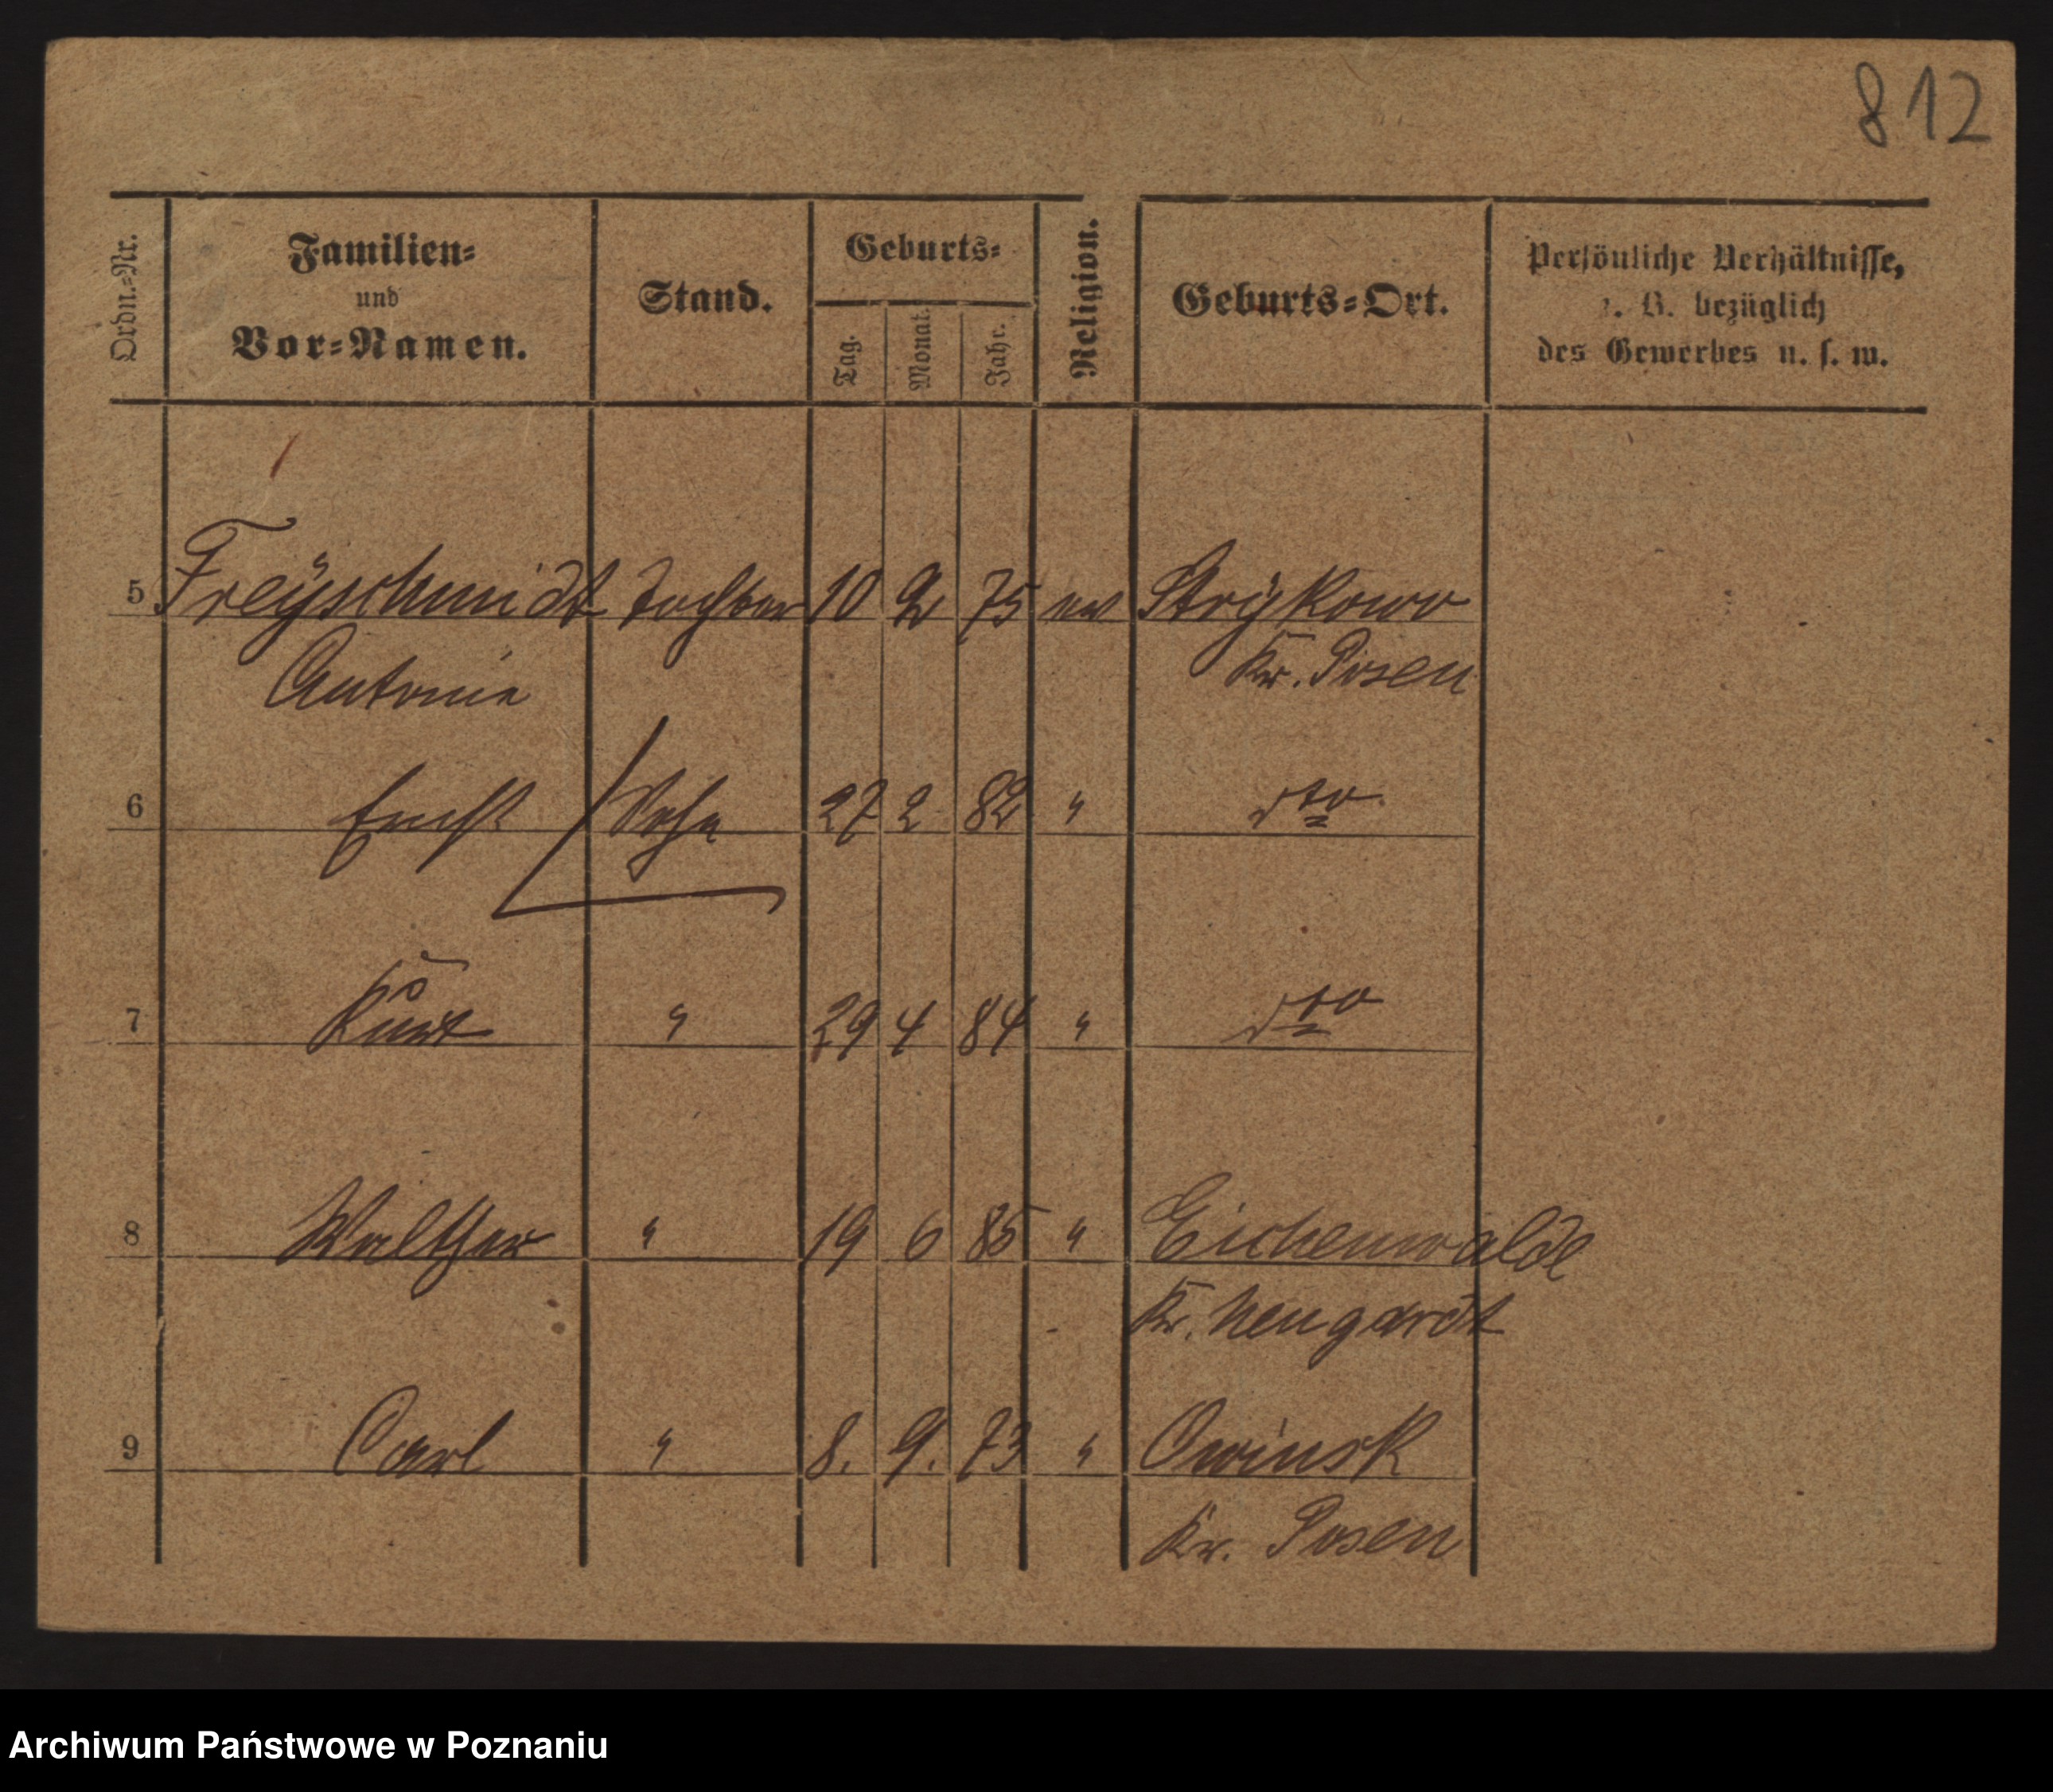 812
Ordn.-Nr. Familien- und Vor-Namen. Stand. Geburts- Tag. Monat. Jahr. Religion. Geburts-Ort. Persönliche Verhältnisse, z. B. bezüglich des Gewerbes u. s. w.
5 Freyschmidt Tochter 10 2 75 ev Strykowo
Antonie Kr. Posen
6 Ernst Sohn 27 2 82 " dto
7 Kurt " 29 4 84 " dto
8 Walther " 19 6 85 " Eichenwalde
Kr. Neugardt
9 Carl " 8. 9. 73 " Owinsk
Kr. Posen
Archiwum Państwowe w Poznaniu